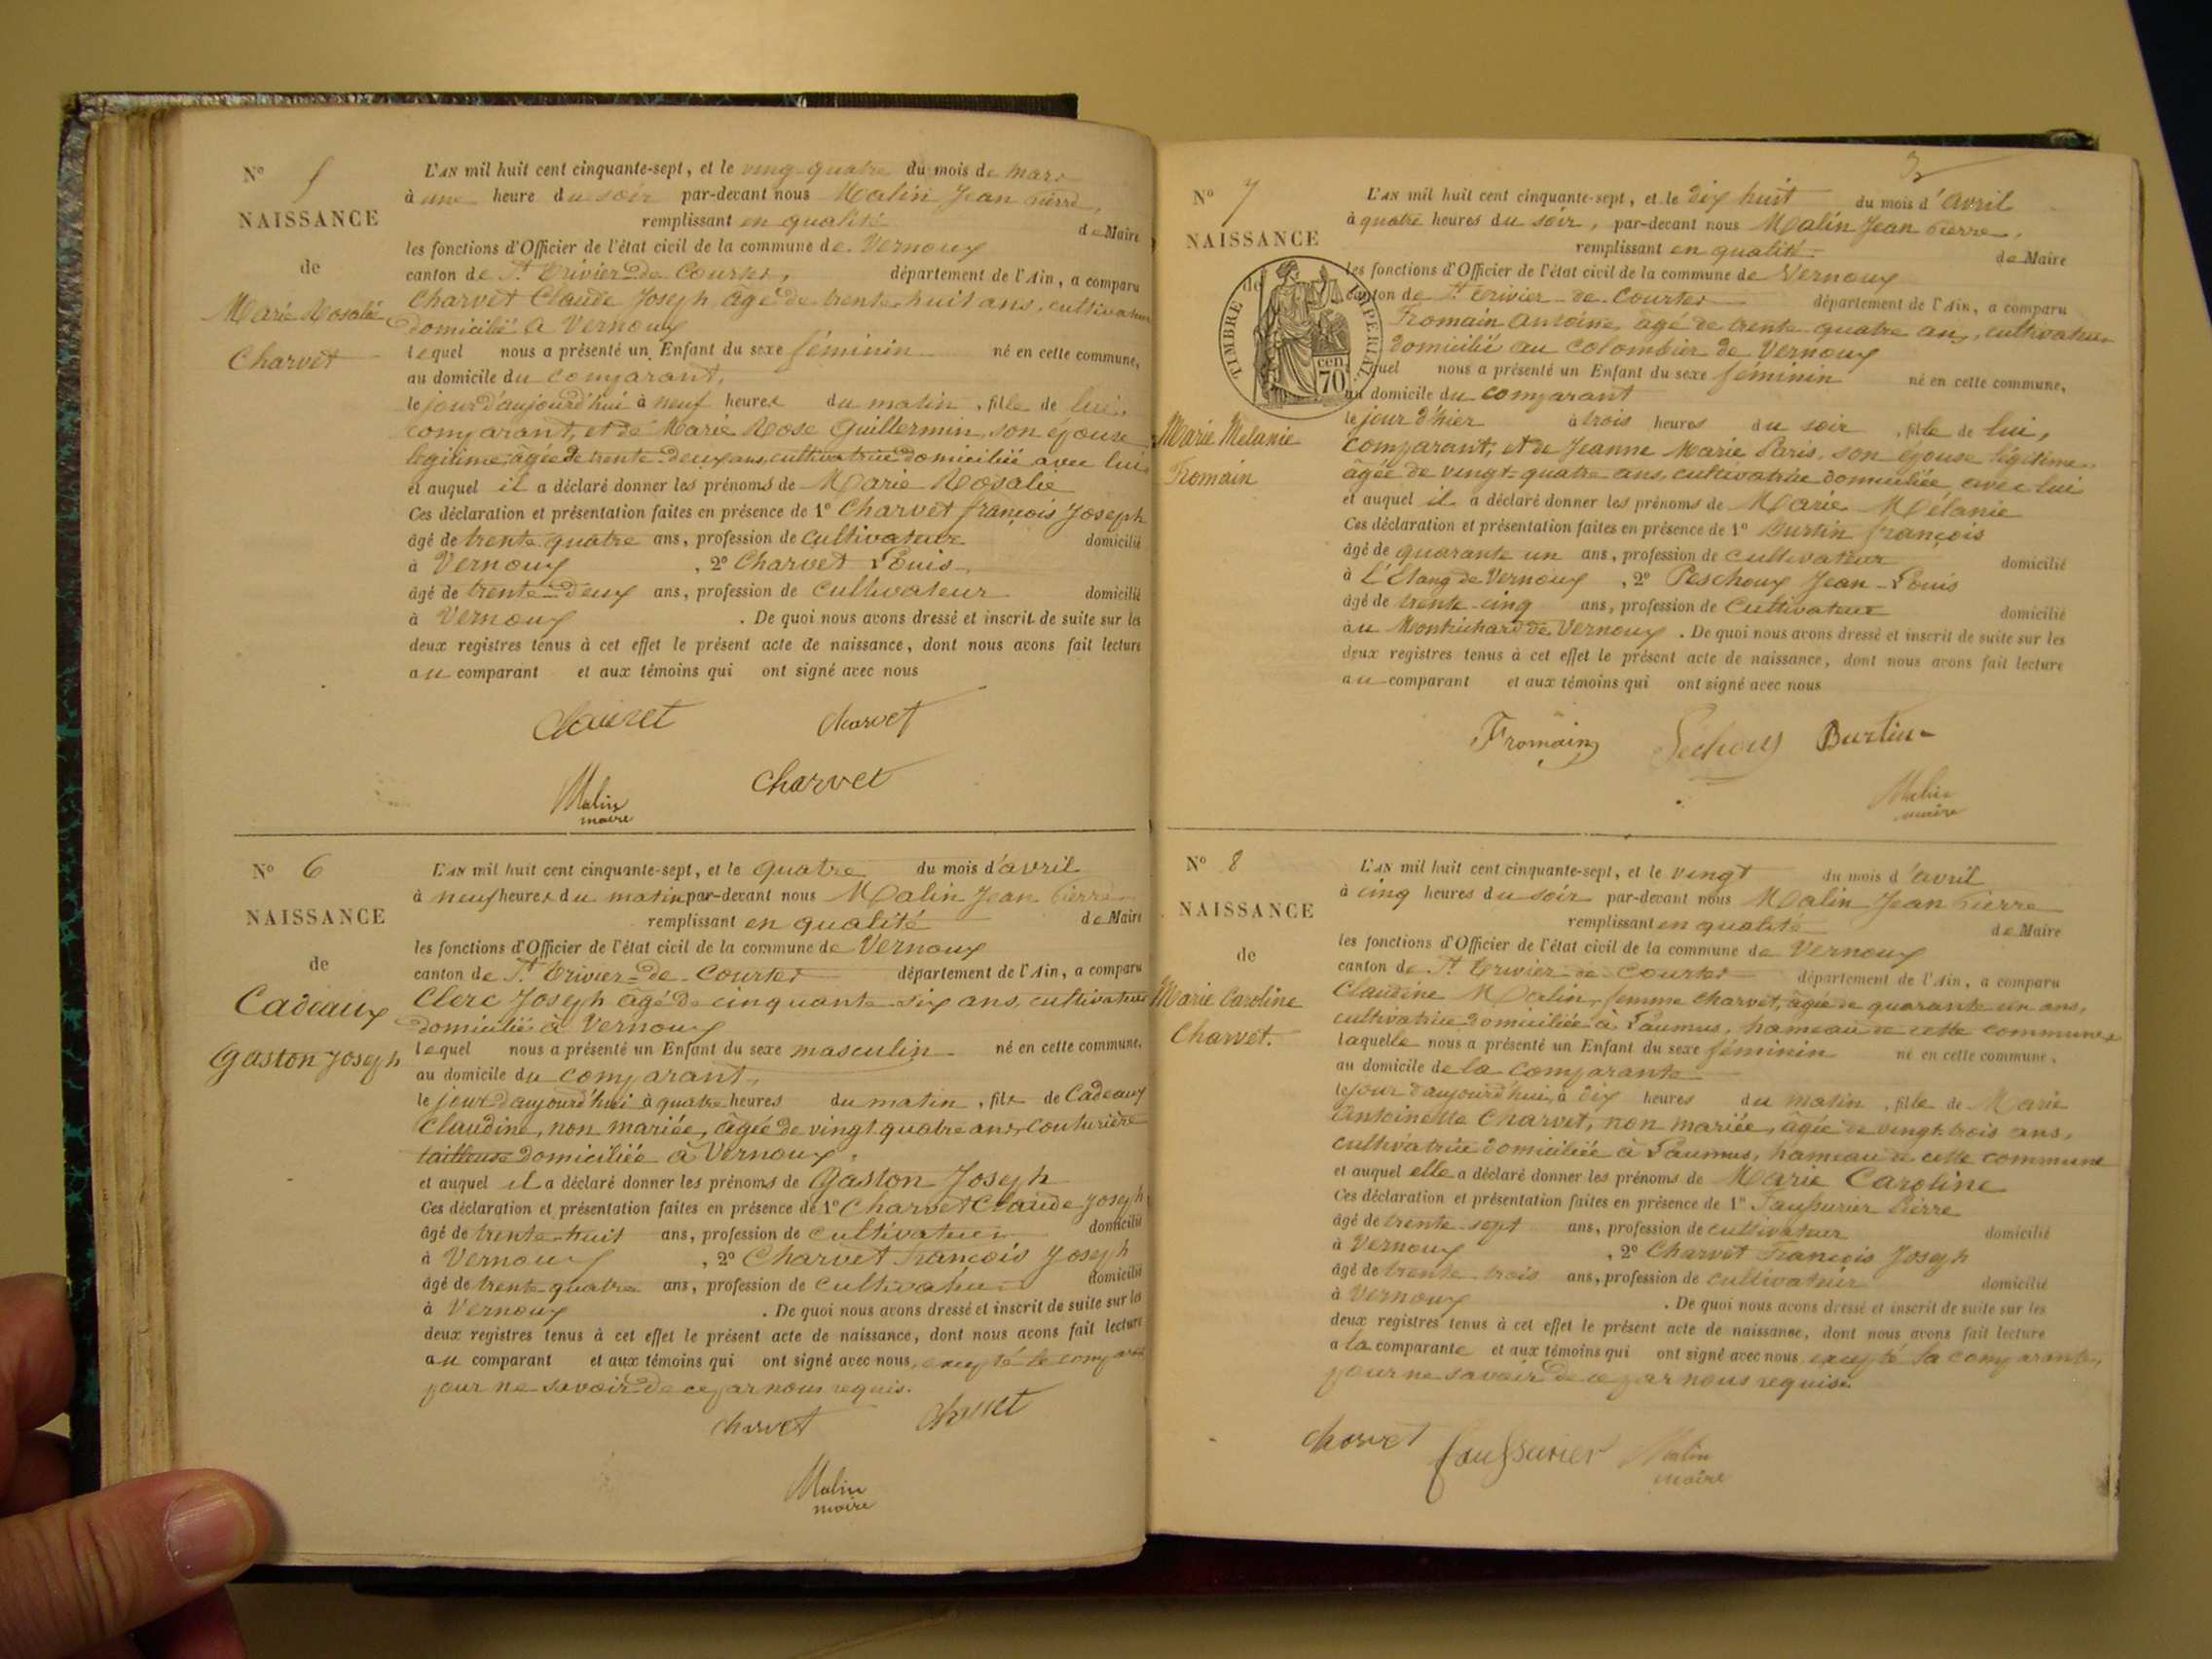 N° 5
NAISSANCE
de
Marie Rosalie
Charvet
L'AN mil huit cent cinquante-sept, et le vingt quatre du mois de mars
à une heure du soir par-devant nous Malin Jean Pierre,
remplissant en qualité de Maire
les fonctions d'Officier de l'état civil de la commune de Vernoux
canton de St Trivier-de-Courtes, département de l'Ain, a comparu
Charvet Claude Joseph âgé de trente-huit ans, cultivateur
domicilié à Vernoux
lequel nous a présenté un Enfant du sexe féminin né en cette commune,
au domicile du comparant,
le jour d'aujourd'hui à neuf heures du matin, fille de lui
comparant, et de Marie Rose Guillermin, son épouse
légitime, âgée de trente-deux ans, cultivatrice domiciliée avec lui
et auquel il a déclaré donner les prénoms de Marie Rosalie
Ces déclaration et présentation faites en présence de 1° Charvet françois Joseph
âgé de trente quatre ans, profession de cultivateur domicilié
à Vernoux, 2° Charvet Louis
âgé de trente-deux ans, profession de cultivateur domicilié
à Vernoux. De quoi nous avons dressé et inscrit de suite sur les
deux registres tenus à cet effet le présent acte de naissance, dont nous avons fait lecture
au comparant et aux témoins qui ont signé avec nous
Charvet Charvet
Malin Charvet
maire
N° 6
NAISSANCE
de
Cadeaux
Gaston Joseph
L'AN mil huit cent cinquante-sept, et le quatre du mois d'avril
à neuf heures du matin par-devant nous Malin Jean Pierre
remplissant en qualité de Maire
les fonctions d'Officier de l'état civil de la commune de Vernoux
canton de St Trivier-de-Courtes département de l'Ain, a comparu
Clerc Joseph âgé de cinquante-six ans, cultivateur
domicilié à Vernoux
lequel nous a présenté un Enfant du sexe masculin né en cette commune,
au domicile du comparant,
le jour d'aujourd'hui à quatre heures du matin, fils de Cadeaux
Claudine, non mariée, âgée de vingt quatre ans, couturière
tailleuse domiciliée à Vernoux,
et auquel il a déclaré donner les prénoms de Gaston Joseph
Ces déclaration et présentation faites en présence de 1° Charvet Claude Joseph
âgé de trente-huit ans, profession de cultivateur domicilié
à Vernoux, 2° Charvet François Joseph
âgé de trente quatre ans, profession de cultivateur domicilié
à Vernoux. De quoi nous avons dressé et inscrit de suite sur les
deux registres tenus à cet effet le présent acte de naissance, dont nous avons fait lecture
au comparant et aux témoins qui ont signé avec nous, excepté le comparant
pour ne savoir de ce par nous requis.
Charvet Charvet
Malin
maire
3
N° 7
NAISSANCE
de
TIMBRE IMPERIAL
cen
70
Marie Melanie
Fromain
L'AN mil huit cent cinquante-sept, et le dix huit du mois d'avril
à quatre heures du soir, par-devant nous Malin Jean Pierre,
remplissant en qualité de Maire
les fonctions d'Officier de l'état civil de la commune de Vernoux
canton de St Trivier-de-Courtes département de l'Ain, a comparu
Fromain Antoine, âgé de trente-quatre ans, cultivateur
domicilié au Colombier de Vernoux
lequel nous a présenté un Enfant du sexe féminin né en cette commune,
au domicile du comparant
le jour d'hier à trois heures du soir, fille de lui,
comparant, et de Jeanne Marie Paris, son épouse légitime,
âgée de vingt-quatre ans, cultivatrice domiciliée avec lui
et auquel il a déclaré donner les prénoms de Marie Mélanie
Ces déclaration et présentation faites en présence de 1° Burtin françois
âgé de quarante un ans, profession de cultivateur domicilié
à l'Etang de Vernoux, 2° Peschoux Jean-Louis
âgé de trente-cinq ans, profession de cultivateur domicilié
au Montrichard de Vernoux. De quoi nous avons dressé et inscrit de suite sur les
deux registres tenus à cet effet le présent acte de naissance, dont nous avons fait lecture
au comparant et aux témoins qui ont signé avec nous
Fromain Burtin
Malin
maire
N° 8
NAISSANCE
de
Marie Caroline
Charvet.
L'AN mil huit cent cinquante-sept, et le vingt du mois d'avril
à cinq heures du soir par-devant nous Malin Jean Pierre
remplissant en qualité de Maire
les fonctions d'Officier de l'état civil de la commune de Vernoux
canton de St Trivier-de-Courtes département de l'Ain, a comparu
Claudine Malin, femme Charvet, âgée de quarante un ans,
cultivatrice domiciliée à Paumus, hameau de cette commune
laquelle nous a présenté un Enfant du sexe féminin né en cette commune,
au domicile de la comparante
le jour d'aujourd'hui, à dix heures du matin, fille de Marie
Antoinette Charvet, non mariée, âgée de vingt-trois ans,
cultivatrice domiciliée à Paumus, hameau de cette commune
et auquel elle a déclaré donner les prénoms de Marie Caroline
Ces déclaration et présentation faites en présence de 1° Faussurier Pierre
âgé de trente-sept ans, profession de cultivateur domicilié
à Vernoux, 2° Charvet François Joseph
âgé de trente-trois ans, profession de cultivateur domicilié
à Vernoux. De quoi nous avons dressé et inscrit de suite sur les
deux registres tenus à cet effet le présent acte de naissance, dont nous avons fait lecture
à la comparante et aux témoins qui ont signé avec nous excepté la comparante,
pour ne savoir de ce par nous requise.
Charvet faussurier Malin
maire